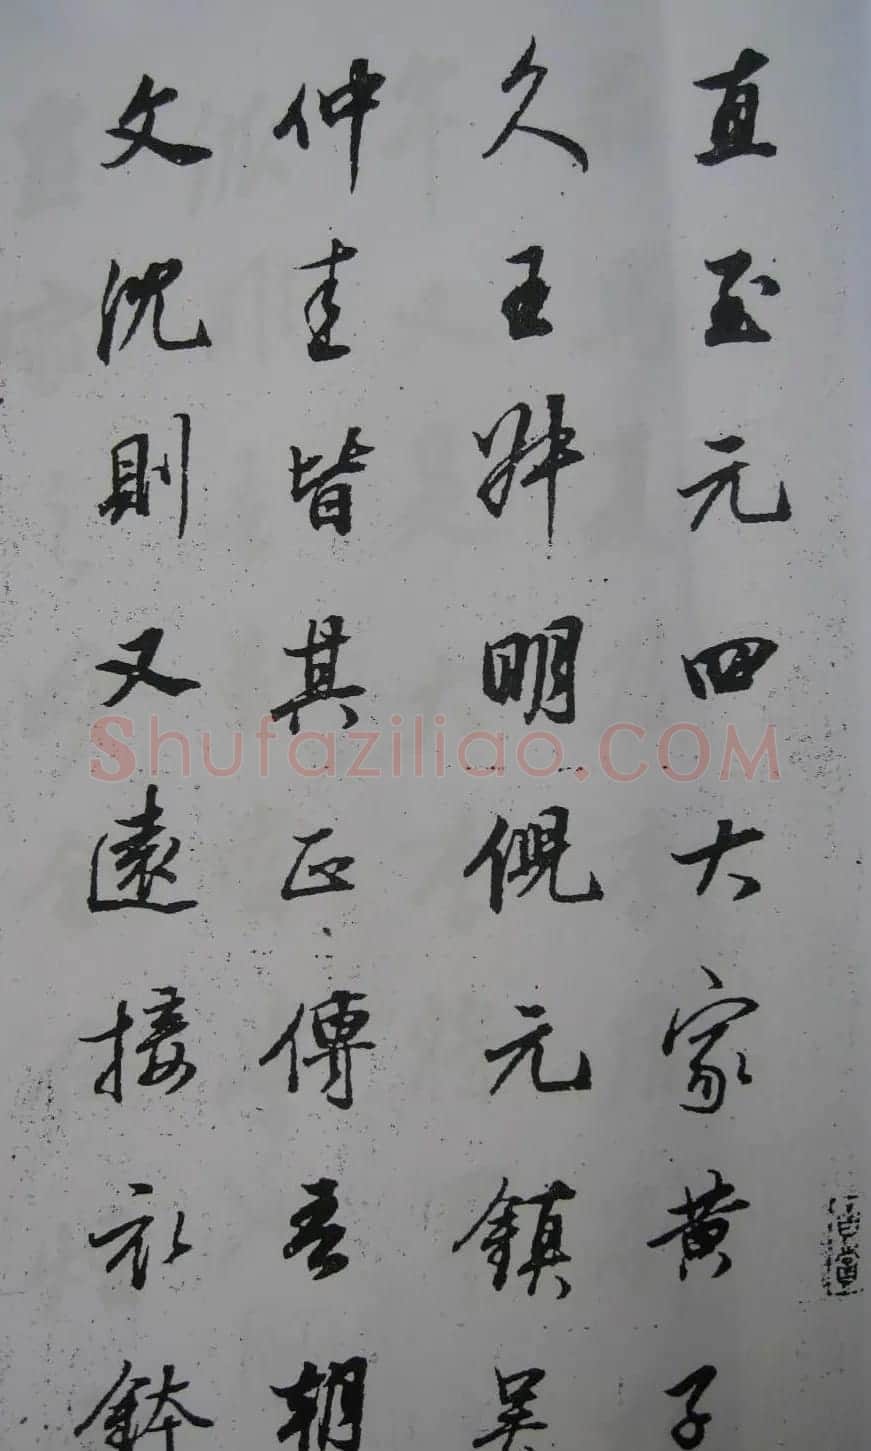 直至元四大家黄子
久王叔明倪元鎮吴
仲圭皆其正傳吾朝
文沈則又遠接衣鉢
Shufaziliao.COM